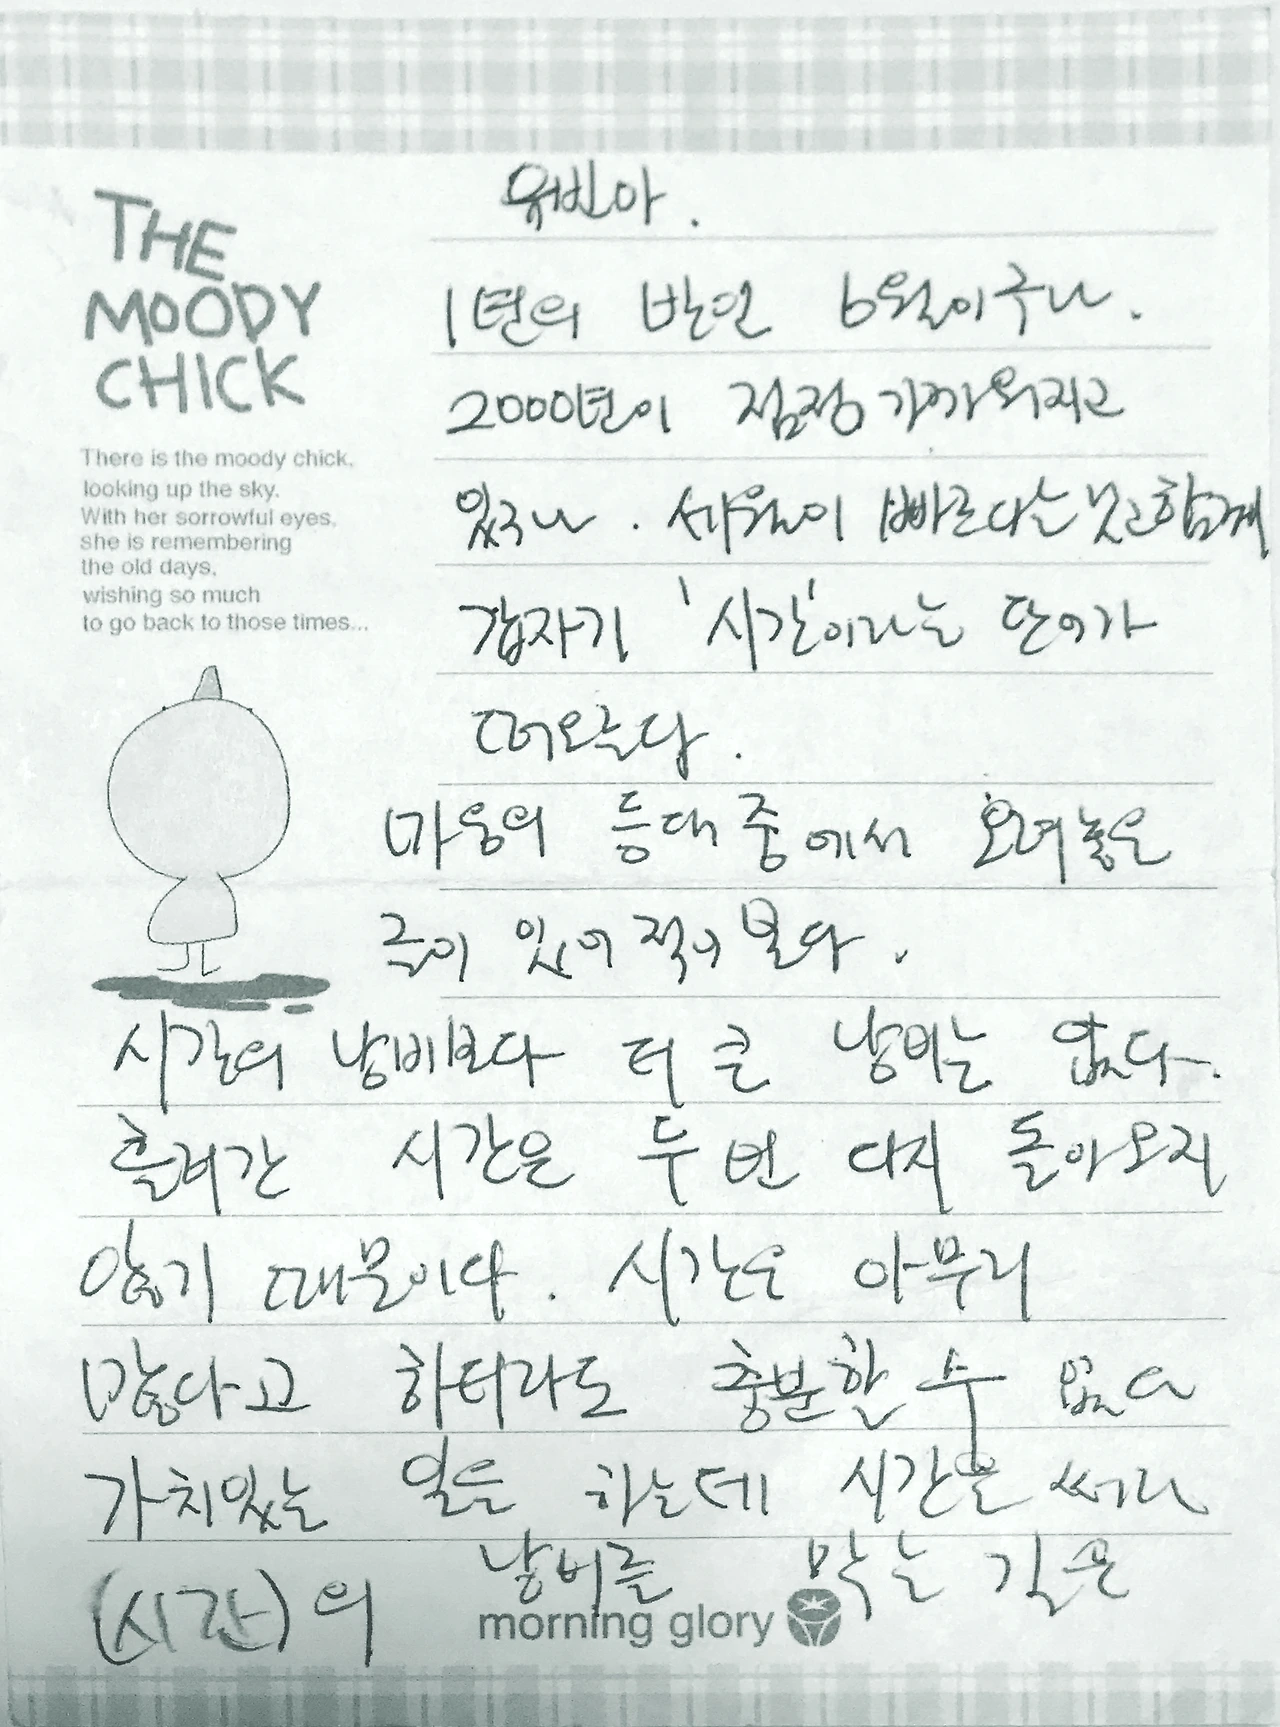 THE
MOODY
CHICK
There is the moody chick,
looking up the sky.
With her sorrowful eyes,
she is remembering
the old days,
wishing so much
to go back to those times...
유빈아.
1년의 반인 6월이구나.
2000년이 점점 가까워지고
있구나. 세월이 빠르다는 것과 함께
갑자기 '시간'이라는 단어가
떠오른다.
마음의 등대 중에서 오려놓은
글이 있어 적어본다.
시간의 낭비보다 더 큰 낭비는 없다.
흘러간 시간은 두 번 다시 돌아오지
않기 때문이다. 시간은 아무리
많다고 하더라도 충분할 수 없다
가치있는 일을 하는데 시간을 써라
(시간)의 낭비를 막는 길은
morning glory